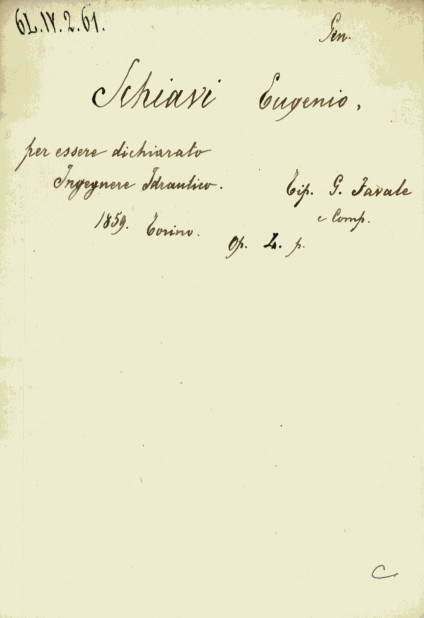 6L.IV.2.61.
Gen.
Schiavi Eugenio,
per essere dichiarato
Ingegnere Idraulico. Tip. G. Favale
e Comp.
1859. Torino.
Op. L. p.
C.